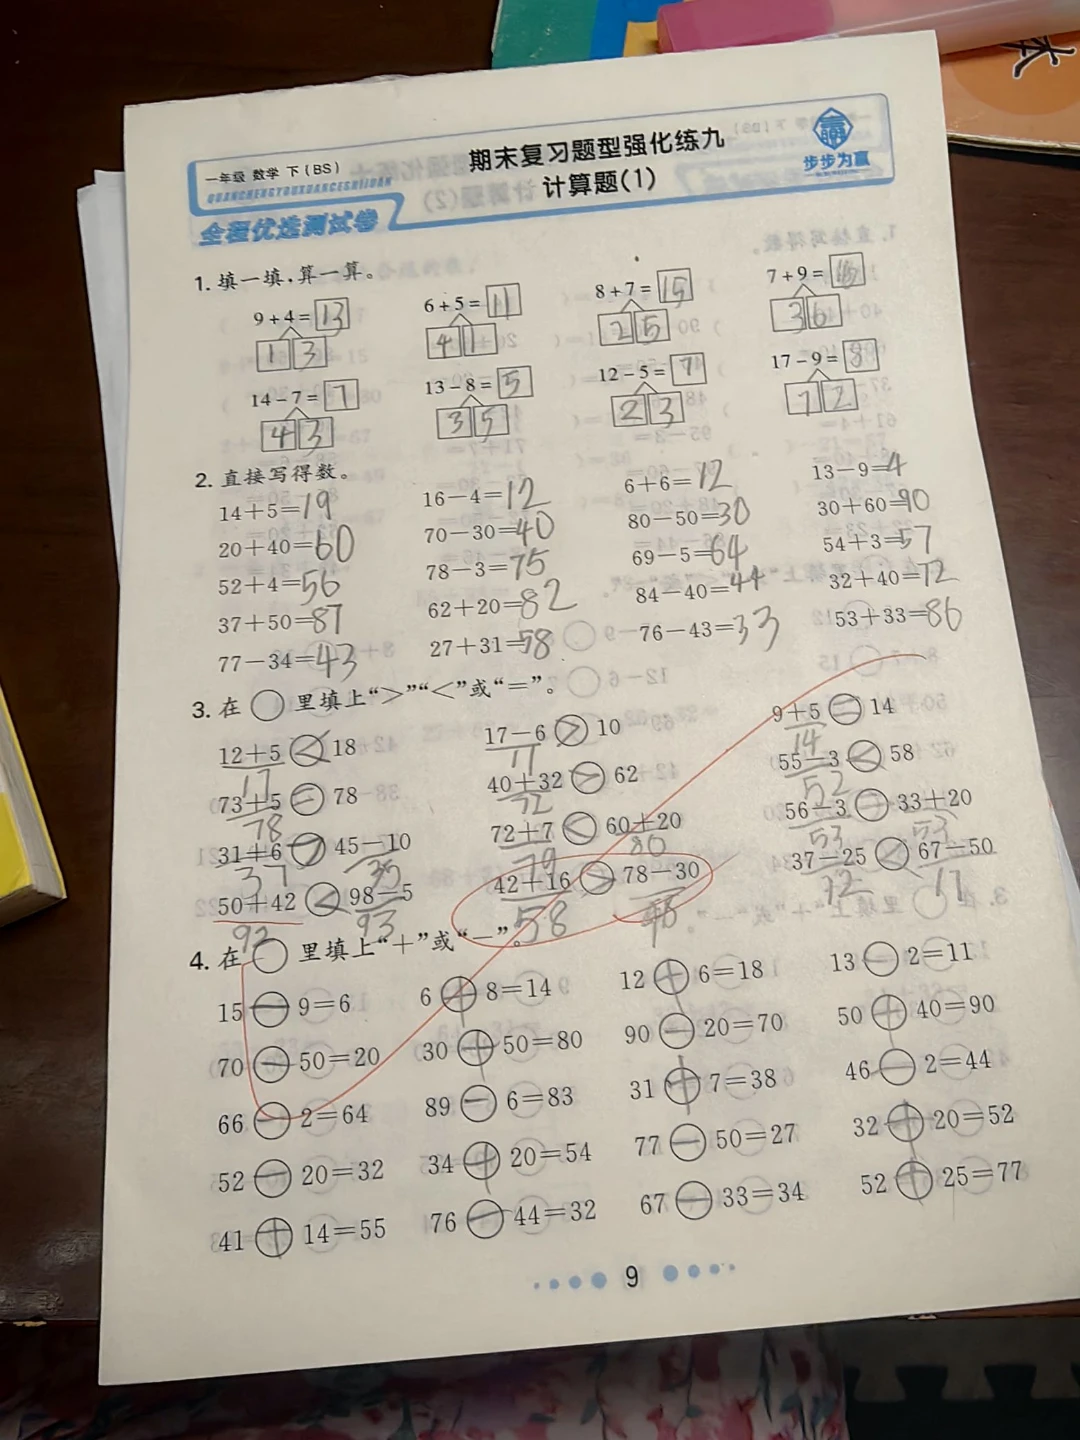 一年级 数学 下(BS)
QUANCHENGYOUXUANCESHIJUAN
全程优选测试卷
期末复习题型强化练九
计算题(1)
步步为赢
本
1. 填一填,算一算。
9+4=13 6+5=11 8+7=15 7+9=16
1 3 4 1 2 5 3 6
14-7=7 13-8=5 12-5=7 17-9=8
4 3 3 5 2 3 7 2
2. 直接写得数。
14+5=19 16-4=12 6+6=12 13-9=4
20+40=60 70-30=40 80-50=30 30+60=90
52+4=56 78-3=75 69-5=64 54+3=57
37+50=87 62+20=82 84-40=44 32+40=72
77-34=43 27+31=58 76-43=33 53+33=86
3. 在○里填上“>”“<”或“=”。
12+5<18 17-6>10 9+5=14
17 11 14
73+5=78 40+32>62 55-3<58
78 72 52
31+6>45-10 72+7<60+20 56-3=33+20
37 35 79 80 53 53
50+42<98-5 42+16>78-30 37-25<67-50
92 93 58 48 12 17
4. 在○里填上“+”或“-”。
15-9=6 6+8=14 12+6=18 13-2=11
70-50=20 30+50=80 90-20=70 50+40=90
66-2=64 89-6=83 31+7=38 46-2=44
52-20=32 34+20=54 77-50=27 32+20=52
41+14=55 76-44=32 67-33=34 52+25=77
9